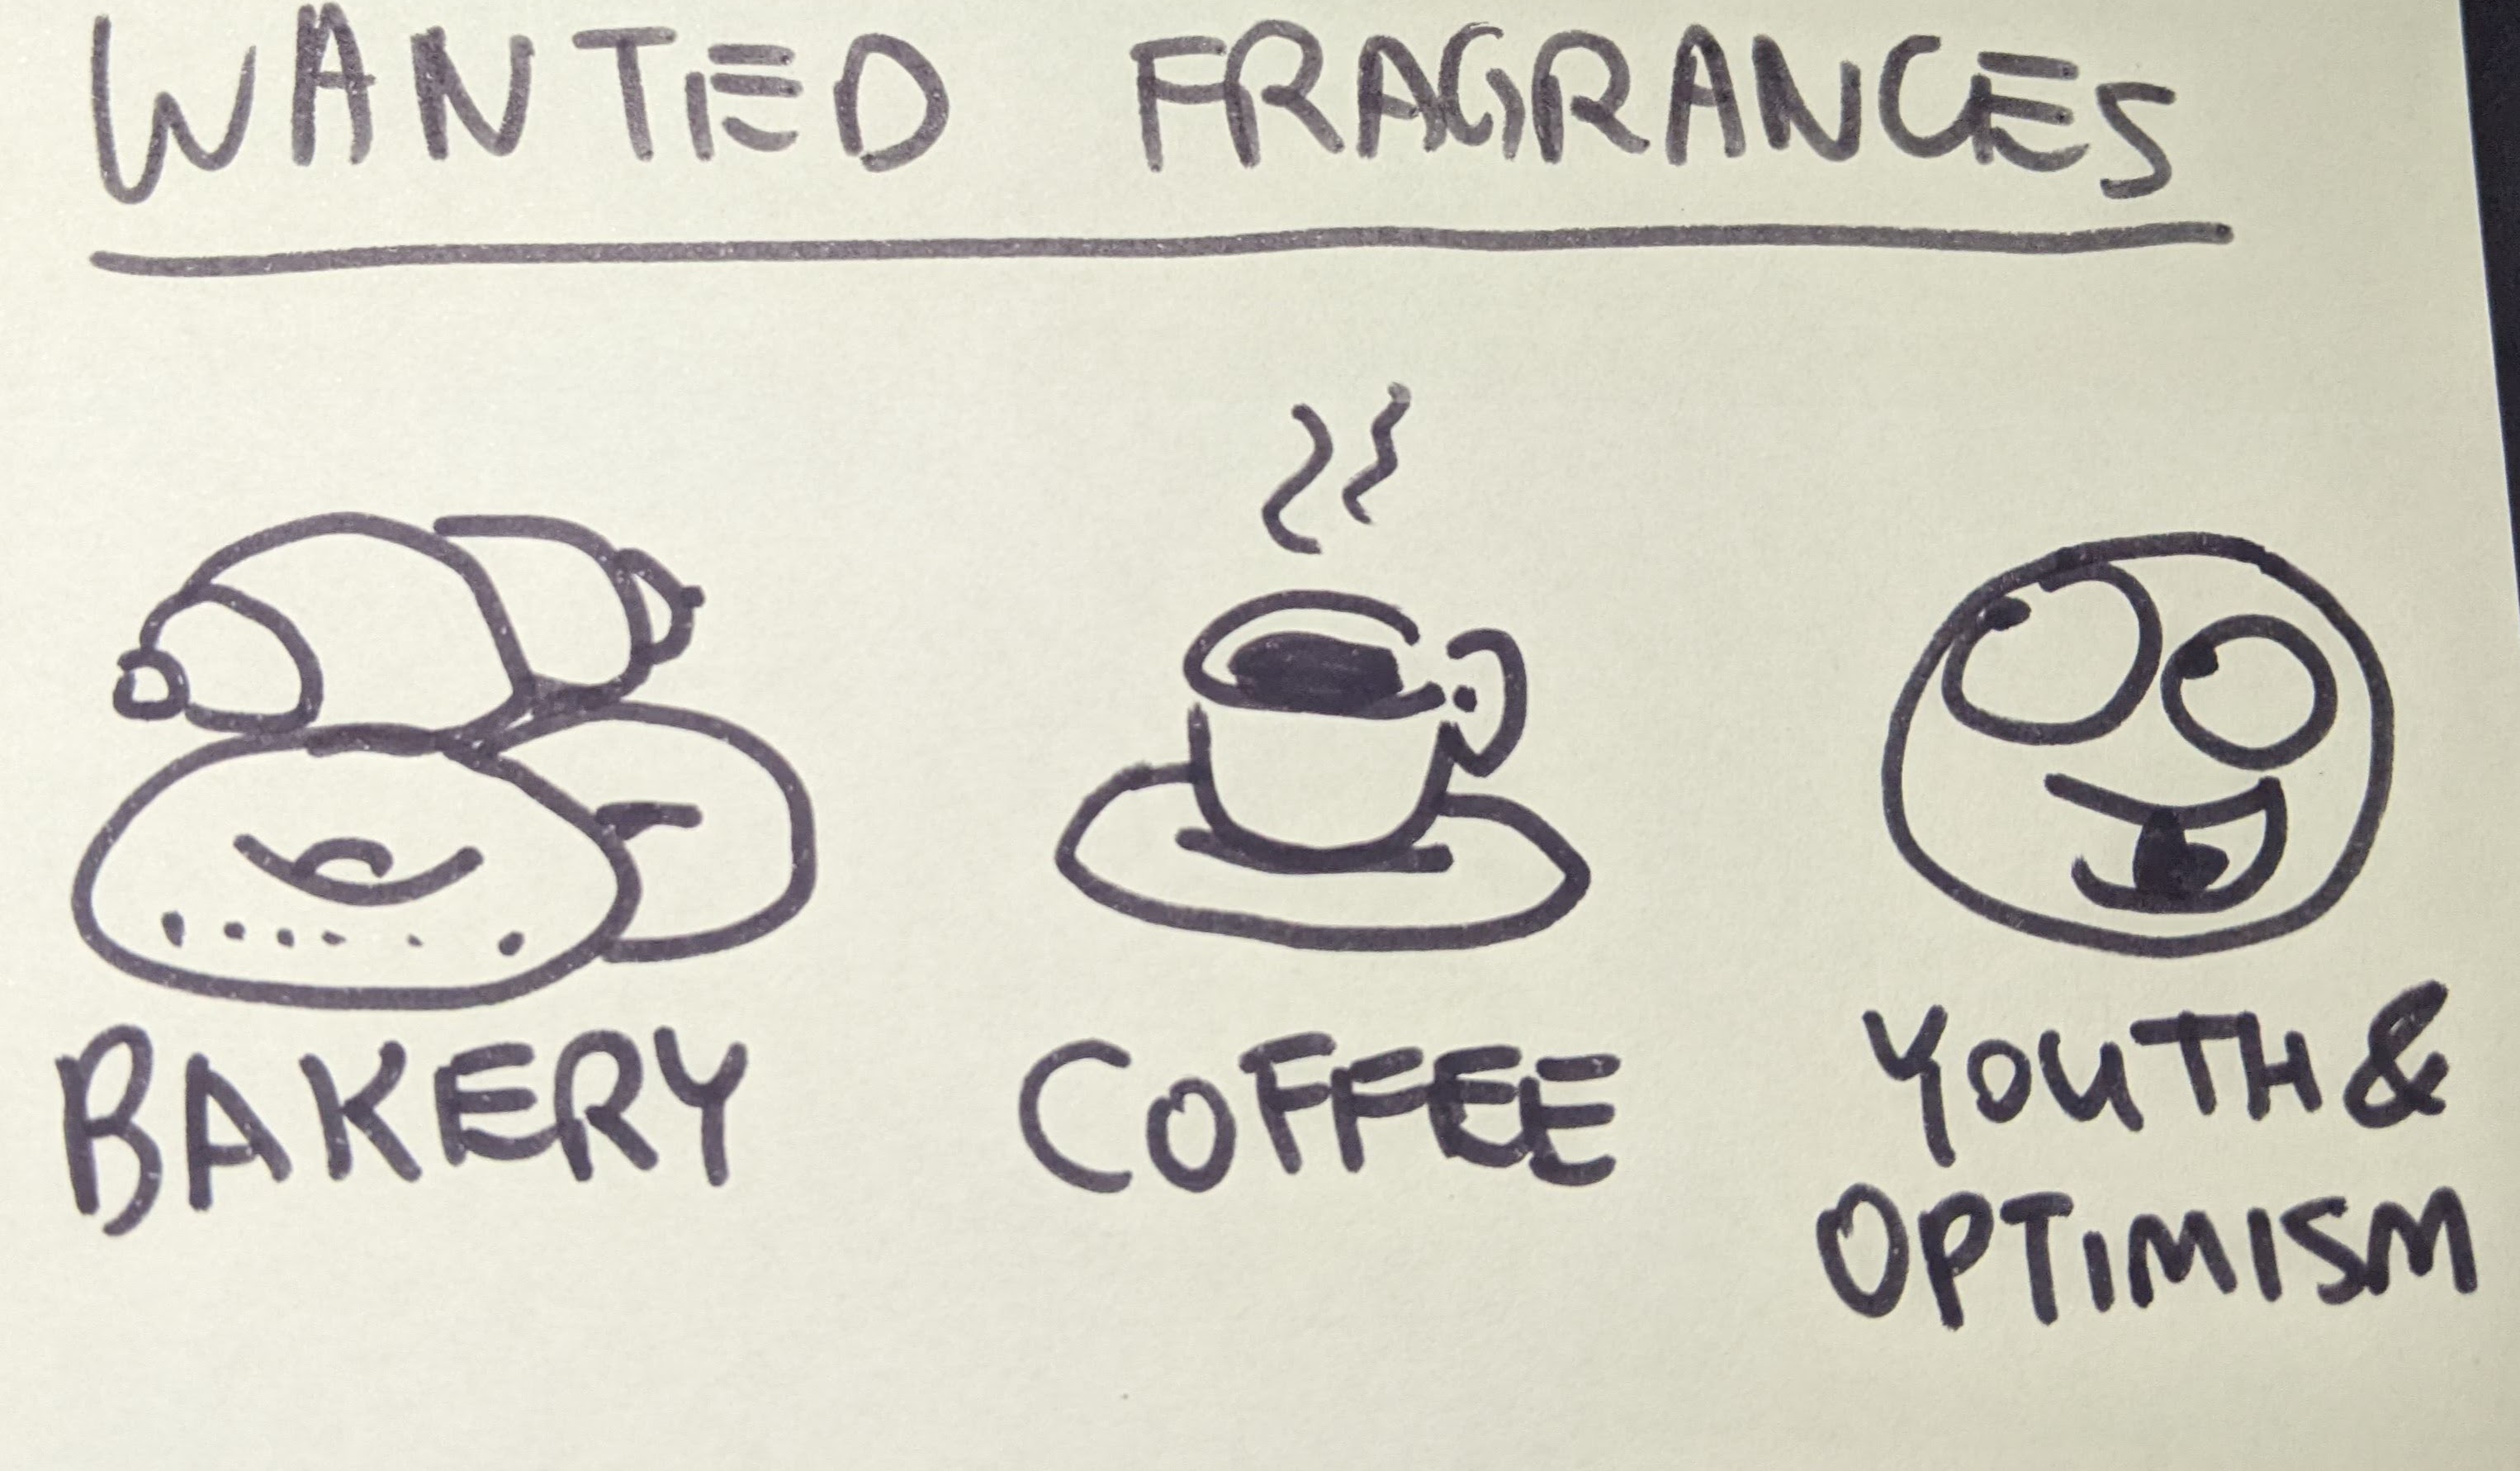 WANTED FRAGRANCES
BAKERY
COFFEE
YOUTH &
OPTIMISM